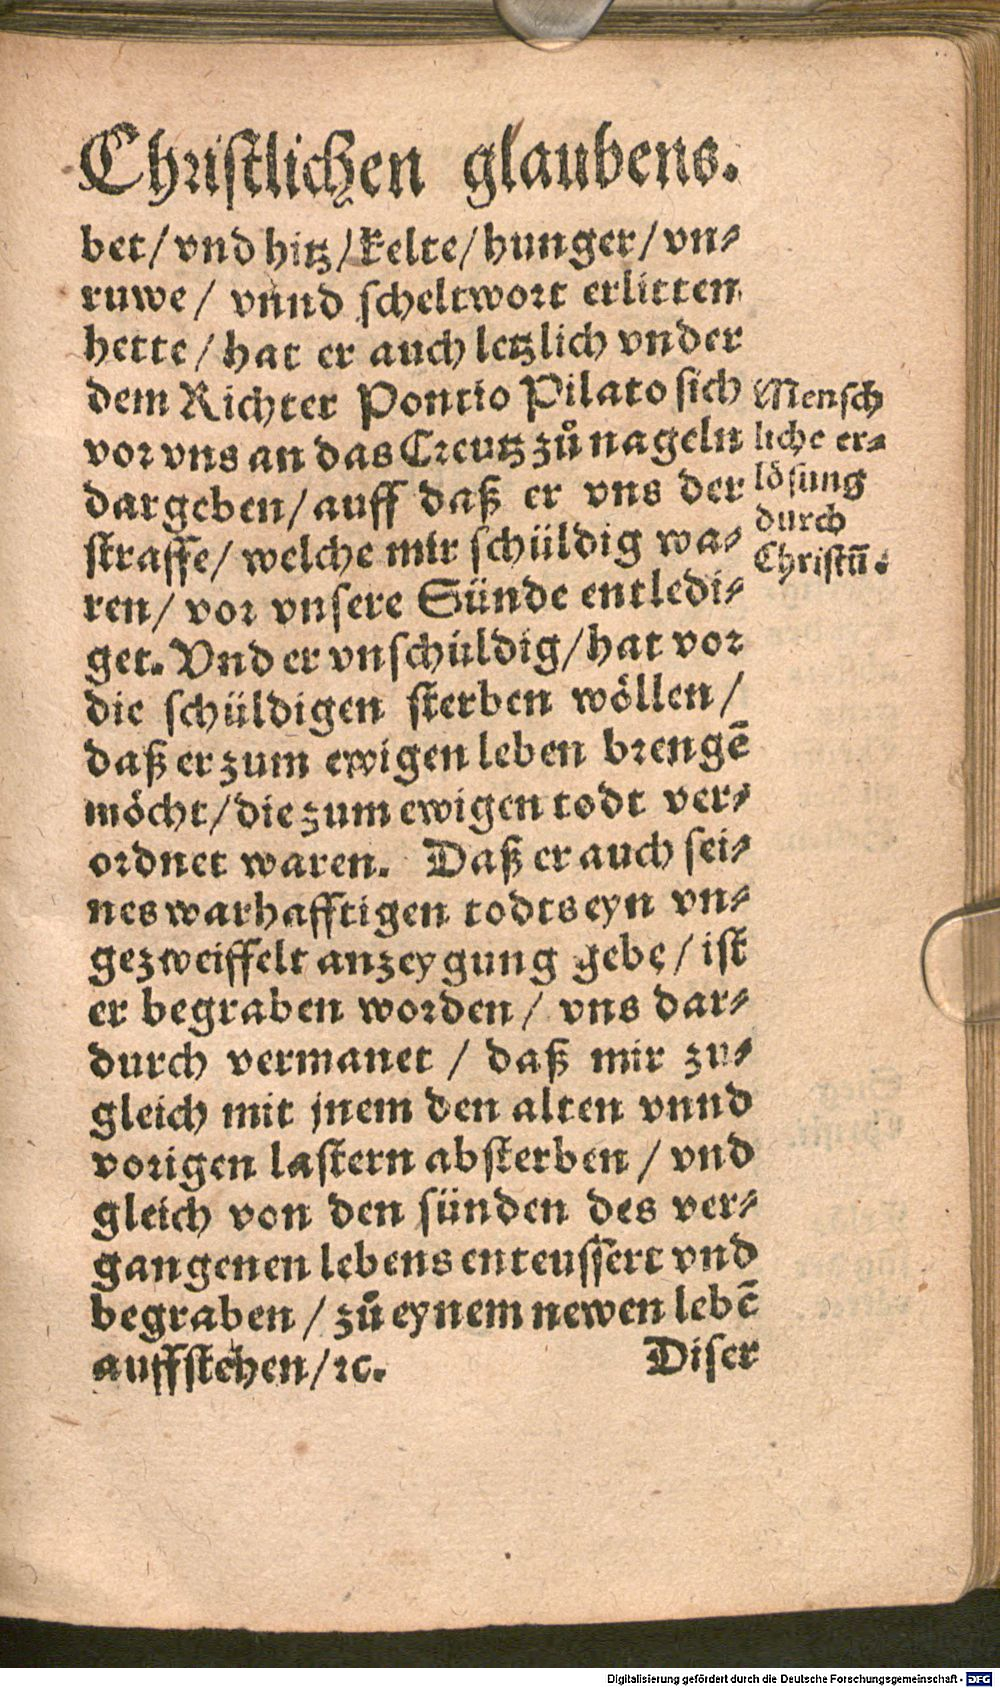 Christlichen glaubens.
bet/ vnd hitz/ kelte/ hunger/ vn⸗
ruwe/ vnnd scheltwort erlitten
hette/ hat er auch letzlich vnder
dem Richter Pontio Pilato sich
vor vns an das Creutz zů nageln
dargeben/ auff daß er vns der
straffe/ welche mir schüldig wa⸗
ren/ vor vnsere Sünde entledi⸗
get. Vnd er vnschüldig/ hat vor
die schüldigen sterben wöllen/
daß er zum ewigen leben brengē
möcht/ die zum ewigen todt ver⸗
ordnet waren. Daß er auch sei⸗
nes warhafftigen todts eyn vn⸗
gezweiffelt anzeygung gebe/ ist
er begraben worden/ vns dar⸗
durch vermanet/ daß mir zu⸗
gleich mit jnem den alten vnnd
vorigen lastern absterben/ vnd
gleich von den sünden des ver⸗
gangenen lebens enteussert vnd
begraben/ zů eynem newen lebē
auffstehen/ ꝛc.
Diser
Mensch
liche er⸗
lösung
durch
Christū.
Digitalisierung gefördert durch die Deutsche Forschungsgemeinschaft - DFG